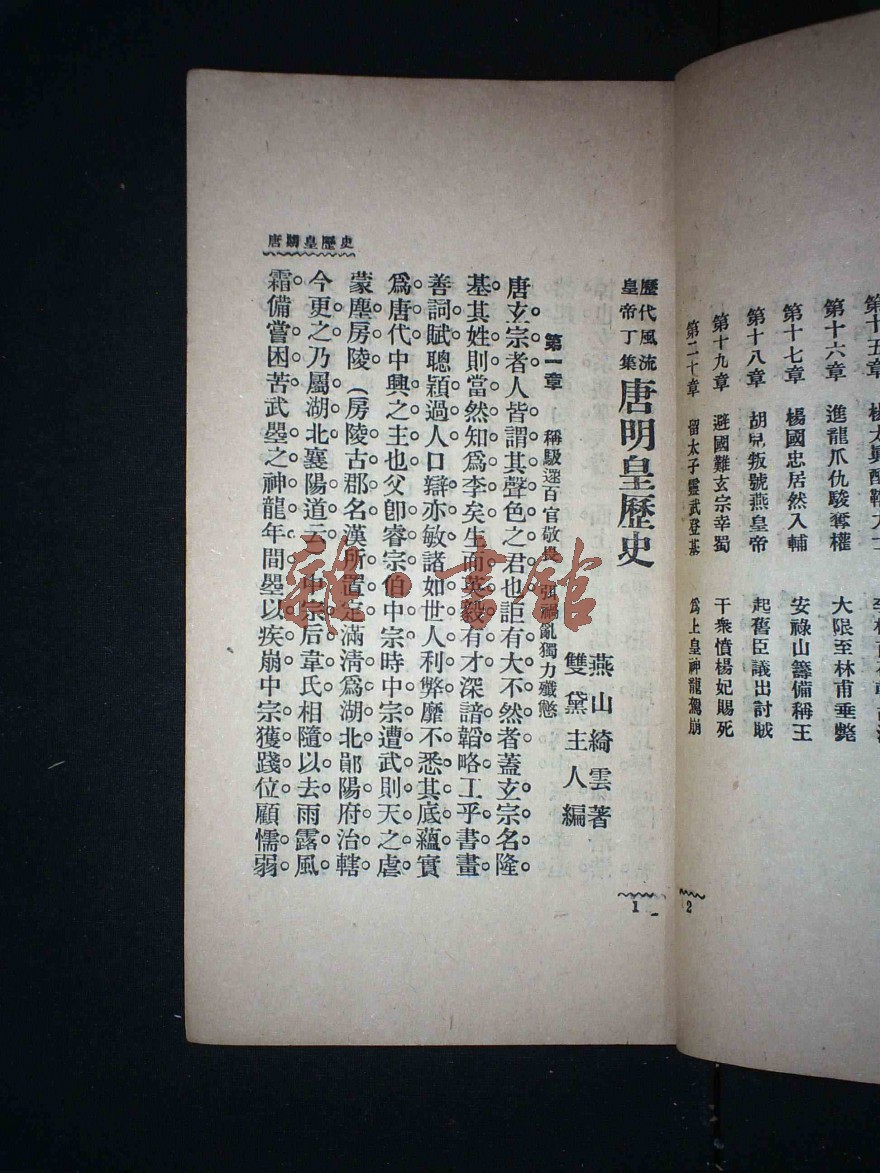 第十六章　進龍爪仇駿奪權　大限至林甫垂斃
第十七章　楊國忠居然入輔　安祿山籌備稱王
第十八章　胡兒叛號燕皇帝　起舊臣議出討賊
第十九章　避國難玄宗幸蜀　干衆憤楊妃賜死
第二十章　留太子靈武登基　爲上皇神龍駕崩
2
歷代風流
皇帝丁集
唐明皇歷史
燕山綺雲著
雙黛主人編
1
第一章　稱駿逆百官敬畏　弭禍亂獨力殲憝
唐玄宗者人皆謂其聲色之君也詎有大不然者蓋玄宗名隆
基其姓則當然知爲李矣生而英毅有才深諳韜略工乎書畫
善詞賦聰穎過人口辯亦敏諸如世人利弊靡不悉其底蘊實
爲唐代中興之主也父卽睿宗伯中宗時中宗遭武則天之虐
蒙塵房陵（房陵古郡名漢所置定滿清爲湖北鄖陽府治轄
今更之乃屬湖北襄陽道云）中宗后韋氏相隨以去雨露風
霜備嘗困苦武曌之神龍年間曌以疾崩中宗獲踐位顧懦弱
唐明皇歷史
雜·書館